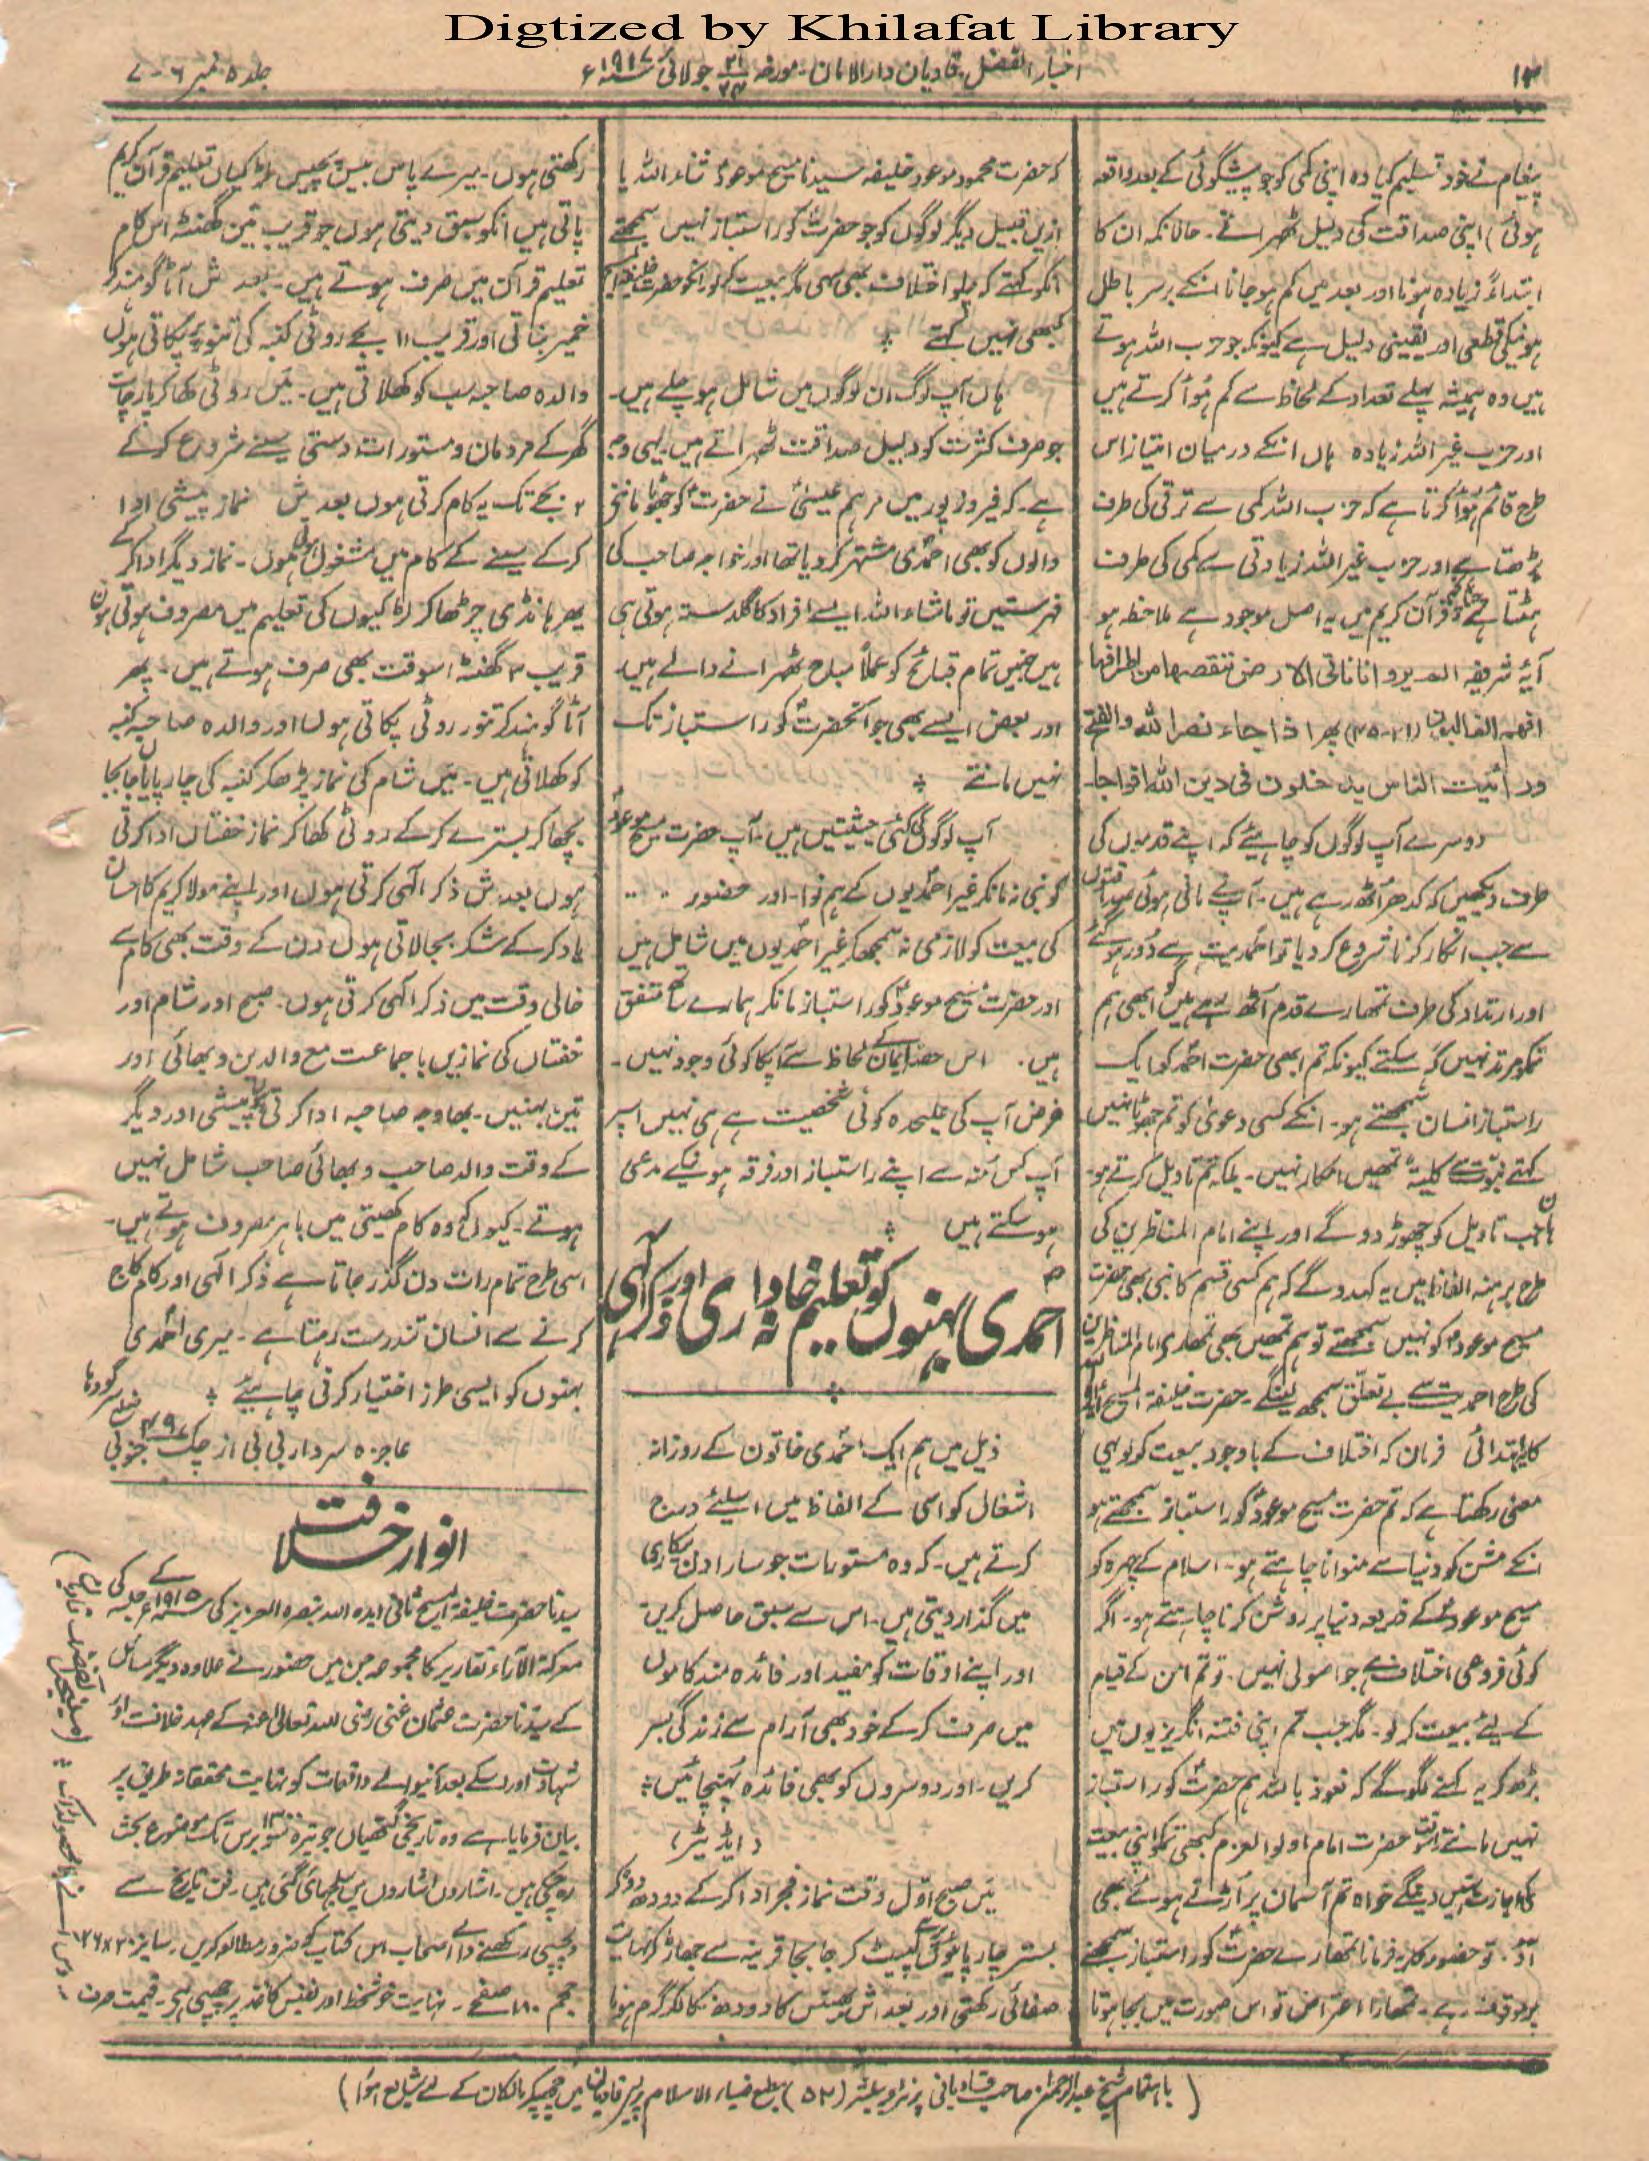 Digtized by Khilafat Library
۱۲
اخبار الفضل قادیان دار الامان - مورخہ ۲۱/۲۴ جولائی ۱۹۱۷ء
جلد ۵ نمبر ۶-۷
پیغام نے خود تسلیم کیا وہ اپنی کمی کو جو پیشگوئی کے بعد واقعہ
ہوئی) اپنی صداقت کی دلیل ٹھہراتے۔ حالانکہ ان کا
ابتداءً زیادہ ہونا اور بعد میں کم ہو جانا انکے برسر باطل
ہونیکی قطعی اور یقینی دلیل ہے کیونکہ جو حزب اللہ ہوتے
ہیں وہ ہمیشہ پہلے تعداد کے لحاظ سے کم ہوا کرتے ہیں
اور حزب غیر اللہ زیادہ ہاں انکے درمیان امتیاز اس
طرح قائم ہوا کرتا ہے کہ حزب اللہ کمی سے ترقی کی طرف
بڑھتا ہے اور حزب غیر اللہ زیادتی سے کمی کی طرف
ہٹتا ہے چنانچہ قرآن کریم میں یہ اصل موجود ہے ملاحظہ ہو
آیۂ شریفہ الم یروا انا ناتی الارض ننقصھا من اطرافھا
افھم الغالبون (۲۱-۴۵) پھر اذا جاء نصر اللہ والفتح
ورأیت الناس یدخلون فی دین اللہ افواجا۔
دوسرے آپ لوگوں کو چاہیئے کہ اپنے قدموں کی
طرف دیکھیں کہ کدھر اُٹھ رہے ہیں۔ آپنے مانی ہوئی صداقتوں
سے جب انکار کرنا شروع کر دیا تو احمدیت سے دُور ہو گئے
اور ارتداد کی طرف تمہارے قدم اُٹھ رہے ہیں گو ابھی ہم
تمکو مرتد نہیں کہہ سکتے کیونکہ تم ابھی حضرت احمدؑ کو ایک
راستباز انسان سمجھتے ہو۔ انکے کسی دعویٰ کو تم جھوٹا نہیں
کہتے نبوت سے کلیتہً تمہیں انکار نہیں۔ بلکہ تم تاویل کرتے ہو۔
ہاں جب تاویل کو چھوڑ دو گے اور اپنے امام المناظرین کی
طرح برہنہ الفاظ میں یہ کہدو گے کہ ہم کسی قسم کا نبی بھی حضرت
مسیح موعودؑ کو نہیں سمجھتے تو ہم تمھیں بھی تمھارے امام المناظرین
کی طرح احمدیت سے بے تعلق سمجھ لینگے۔ حضرت خلیفۃ المسیح ایدہ اللہ
کا ابتدائی فرمان کہ اختلاف کے باوجود بیعت کر لو یہی
معنی رکھتا ہے کہ تم حضرت مسیح موعودؑ کو راستباز سمجھتے ہو
انکے مشن کو دنیا سے منوانا چاہتے ہو۔ اسلام کے چہرہ کو
مسیح موعودؑ کے ذریعہ دنیا پر روشن کرنا چاہتے ہو۔ اگر
کوئی فروعی اختلاف ہے جو اصولی نہیں۔ تو تم امن کے قیام
کے لیئے بیعت کر لو۔ مگر جب تم اپنی فتنہ انگریزیوں میں
بڑھ کر یہ کہنے لگو گے کہ نعوذ باللہ ہم حضرتؑ کو راستباز
نہیں مانتے اسوقت حضرت امام اولو العزم کبھی تمکو اپنی بیعت
کی اجازت نہیں دینگے خواہ تم آسمان پر اُڑتے ہوئے بھی
آؤ۔ تو حضور کا یہ فرمانا تمھارے حضرتؑ کو راستباز سمجھنے
پر موقوف ہے۔ تمھارا اعتراض تو اس صورت میں بجا ہوتا
کہ حضرت محمود موعود خلیفہ سیدنا مسیح موعودؑ ثناء اللہ یا
ازیں قبیل دیگر لوگوں کو جو حضرتؑ کو راستباز نہیں سمجھتے
انکو کہتے کہ چلو اختلاف بھی سہی مگر بیعت کر لو انکو حضرت خلیفۃ المسیح
کبھی نہیں کہتے
ہاں آپ لوگ ان لوگوں میں شامل ہو چلے ہیں۔
جو صرف کثرت کو دلیل صداقت ٹھہراتے ہیں۔ یہی وجہ
ہے۔ کہ فیروز پور میں مرہم عیسیٰ نے حضرتؑ کو جھوٹا ماننے
والوں کو بھی احمدی مشتہر کر دیا تھا اور خواجہ صاحب کی
فہرستیں تو ماشاء اللہ ایسے افراد کا گلدستہ ہوتی ہی
ہیں جنمیں تمام قبائح کو عملاً مباح ٹھہرانے والے ہیں۔
اور بعض ایسے بھی جو آنحضرتؐ کو راستباز تک
نہیں مانتے
آپ لوگوں کی کئی حیثیتیں ہیں۔ آپ حضرت مسیح موعودؑ
کو نبی نہ مانکر غیر احمدیوں کے ہم نوا۔ اور حضور
کی بیعت کو لازمی نہ سمجھکر غیر احمدیوں میں شامل ہیں
اور حضرت مسیح موعودؑ کو راستباز مانکر ہمارے ساتھ متفق
ہیں۔ اس حصہ ایمان کے لحاظ سے آپکا کوئی وجود نہیں۔
غرض آپ کی علیحدہ کوئی شخصیت ہے ہی نہیں اسپر
آپ کس مُنہ سے اپنے راستباز اور فرقہ ہونیکے مدعی
ہو سکتے ہیں
احمدی بہنوں کو تعلیم خانہ داری اور ذکر الٰہی
ذیل میں ہم ایک احمدی خاتون کے روزانہ
اشغال کو اسی کے الفاظ میں اسلیئے درج
کرتے ہیں۔ کہ وہ مستورات جو سارا دن بیکاری
میں گذار دیتی ہیں۔ اس سے سبق حاصل کریں
اور اپنے اوقات کو مفید اور فائدہ مند کاموں
میں صرف کر کے خود بھی آرام سے زندگی بسر
کریں۔ اور دوسروں کو بھی فائدہ پہنچائیں
(ایڈیٹر)
میں صبح اوّل وقت نماز فجر ادا کر کے دودھ دوہکر
بستر چارپائیوں کے لپیٹ کر جا بجا قرینہ سے جھاڑ کر نہایت
صفائی رکھتی اور بعد اش بھینس کا دودھ نکالکر گرم ہونا
رکھتی ہوں۔ میرے پاس بیس پچیس لڑکیاں تعلیم قرآن کریم
پاتی ہیں انکو سبق دیتی ہوں جو قریب تین گھنٹہ اس کام
تعلیم قرآن میں صرف ہوتے ہیں۔ بعد ش آٹا گوندکر
خمیر بناتی اور قریب ۱۱ بجے روٹی کنبہ کی تنور پر پکاتی ہوں
والدہ صاحبہ سب کو کھلاتی ہیں۔ میں روٹی کھا کر پارچات
گھر کے مردمان و مستورات دستی سینے شروع کر کے
۲ بجے تک یہ کام کرتی ہوں بعد ش نماز پیشی ادا
کر کے سینے کے کام میں مشغول ہوتی ہوں۔ نماز دیگر ادا کر کے
پھر ہانڈی چڑھا کر لڑکیوں کی تعلیم میں مصروف ہوتی ہوں
قریب ۲ گھنٹہ اسوقت بھی صرف ہوتے ہیں۔ پھر
آٹا گوندکر تنور روٹی پکاتی ہوں اور والدہ صاحبہ کنبہ
کو کھلاتی ہیں۔ میں شام کی نماز پڑھکر کنبہ کی چارپائیاں جا بجا
بچھا کر بسترے کر کے روٹی کھا کر نماز خفتاں ادا کرتی
ہوں بعد ش ذکر الٰہی کرتی ہوں اور اپنے مولا کریم کا احسان
یاد کر کے شکر بجا لاتی ہوں دن کے وقت بھی کام سے
خالی وقت میں ذکر الٰہی کرتی ہوں۔ صبح اور شام اور
خفتاں کی نمازیں باجماعت مع والدین و بھائی اور
تین بہنیں۔ بھاوجہ صاحبہ ادا کرتی ہیں پیشی اور دیگر
کے وقت والد صاحب و بھائی صاحب شامل نہیں
ہوتے۔ کیونکہ وہ کام کھیتی میں باہر مصروف ہوتے ہیں۔
اسی طرح تمام رات دن گذر جاتا ہے ذکر الٰہی اور کام کاج
کرنے سے انسان تندرست رہتا ہے۔ میری احمدی
بہنوں کو ایسی طرز اختیار کرنی چاہیئے
عاجزہ سردار بی بی از چک جنوبی ضلع سرگودہا
انوار خلافت
سیدنا حضرت خلیفۃ المسیح ثانی ایدہ اللہ بنصرہ العزیز کی ۱۹۱۵ء کے جلسہ کی
معرکۃ الآراء تقاریر کا مجموعہ جن میں حضور نے علاوہ دیگر مسائل
کے سیدنا حضرت عثمان غنی رضی اللہ تعالیٰ عنہ کے عہد خلافت اور
شہادت اور اسکے بعد آنیوالے واقعات کو نہایت محققانہ طریق پر
بیان فرمایا ہے وہ تاریخی گتھیاں جو تیرہ سو برس تک موضوع بحث
رہ چکی ہیں۔ اشاروں اشاروں میں سلجھائی گئی ہیں۔ فن تاریخ سے
دلچسپی رکھنے والے اصحاب اس کتاب کو ضرور مطالعہ کریں۔ سایز ۲۰x۲۶
حجم ۱۸۰ صفحے۔ نہایت خوشخط اور نفیس کاغذ پر چھپی ہے۔ قیمت صرف
دس آنے محصولڈاک
(باہتمام شیخ عبدالرحمن صاحب قادیانی پرنٹر و پبلشر (۵۲) مطبع ضیاء الاسلام پریس قادیان میں چھپکر مالکان کے لیے شایع ہوا)